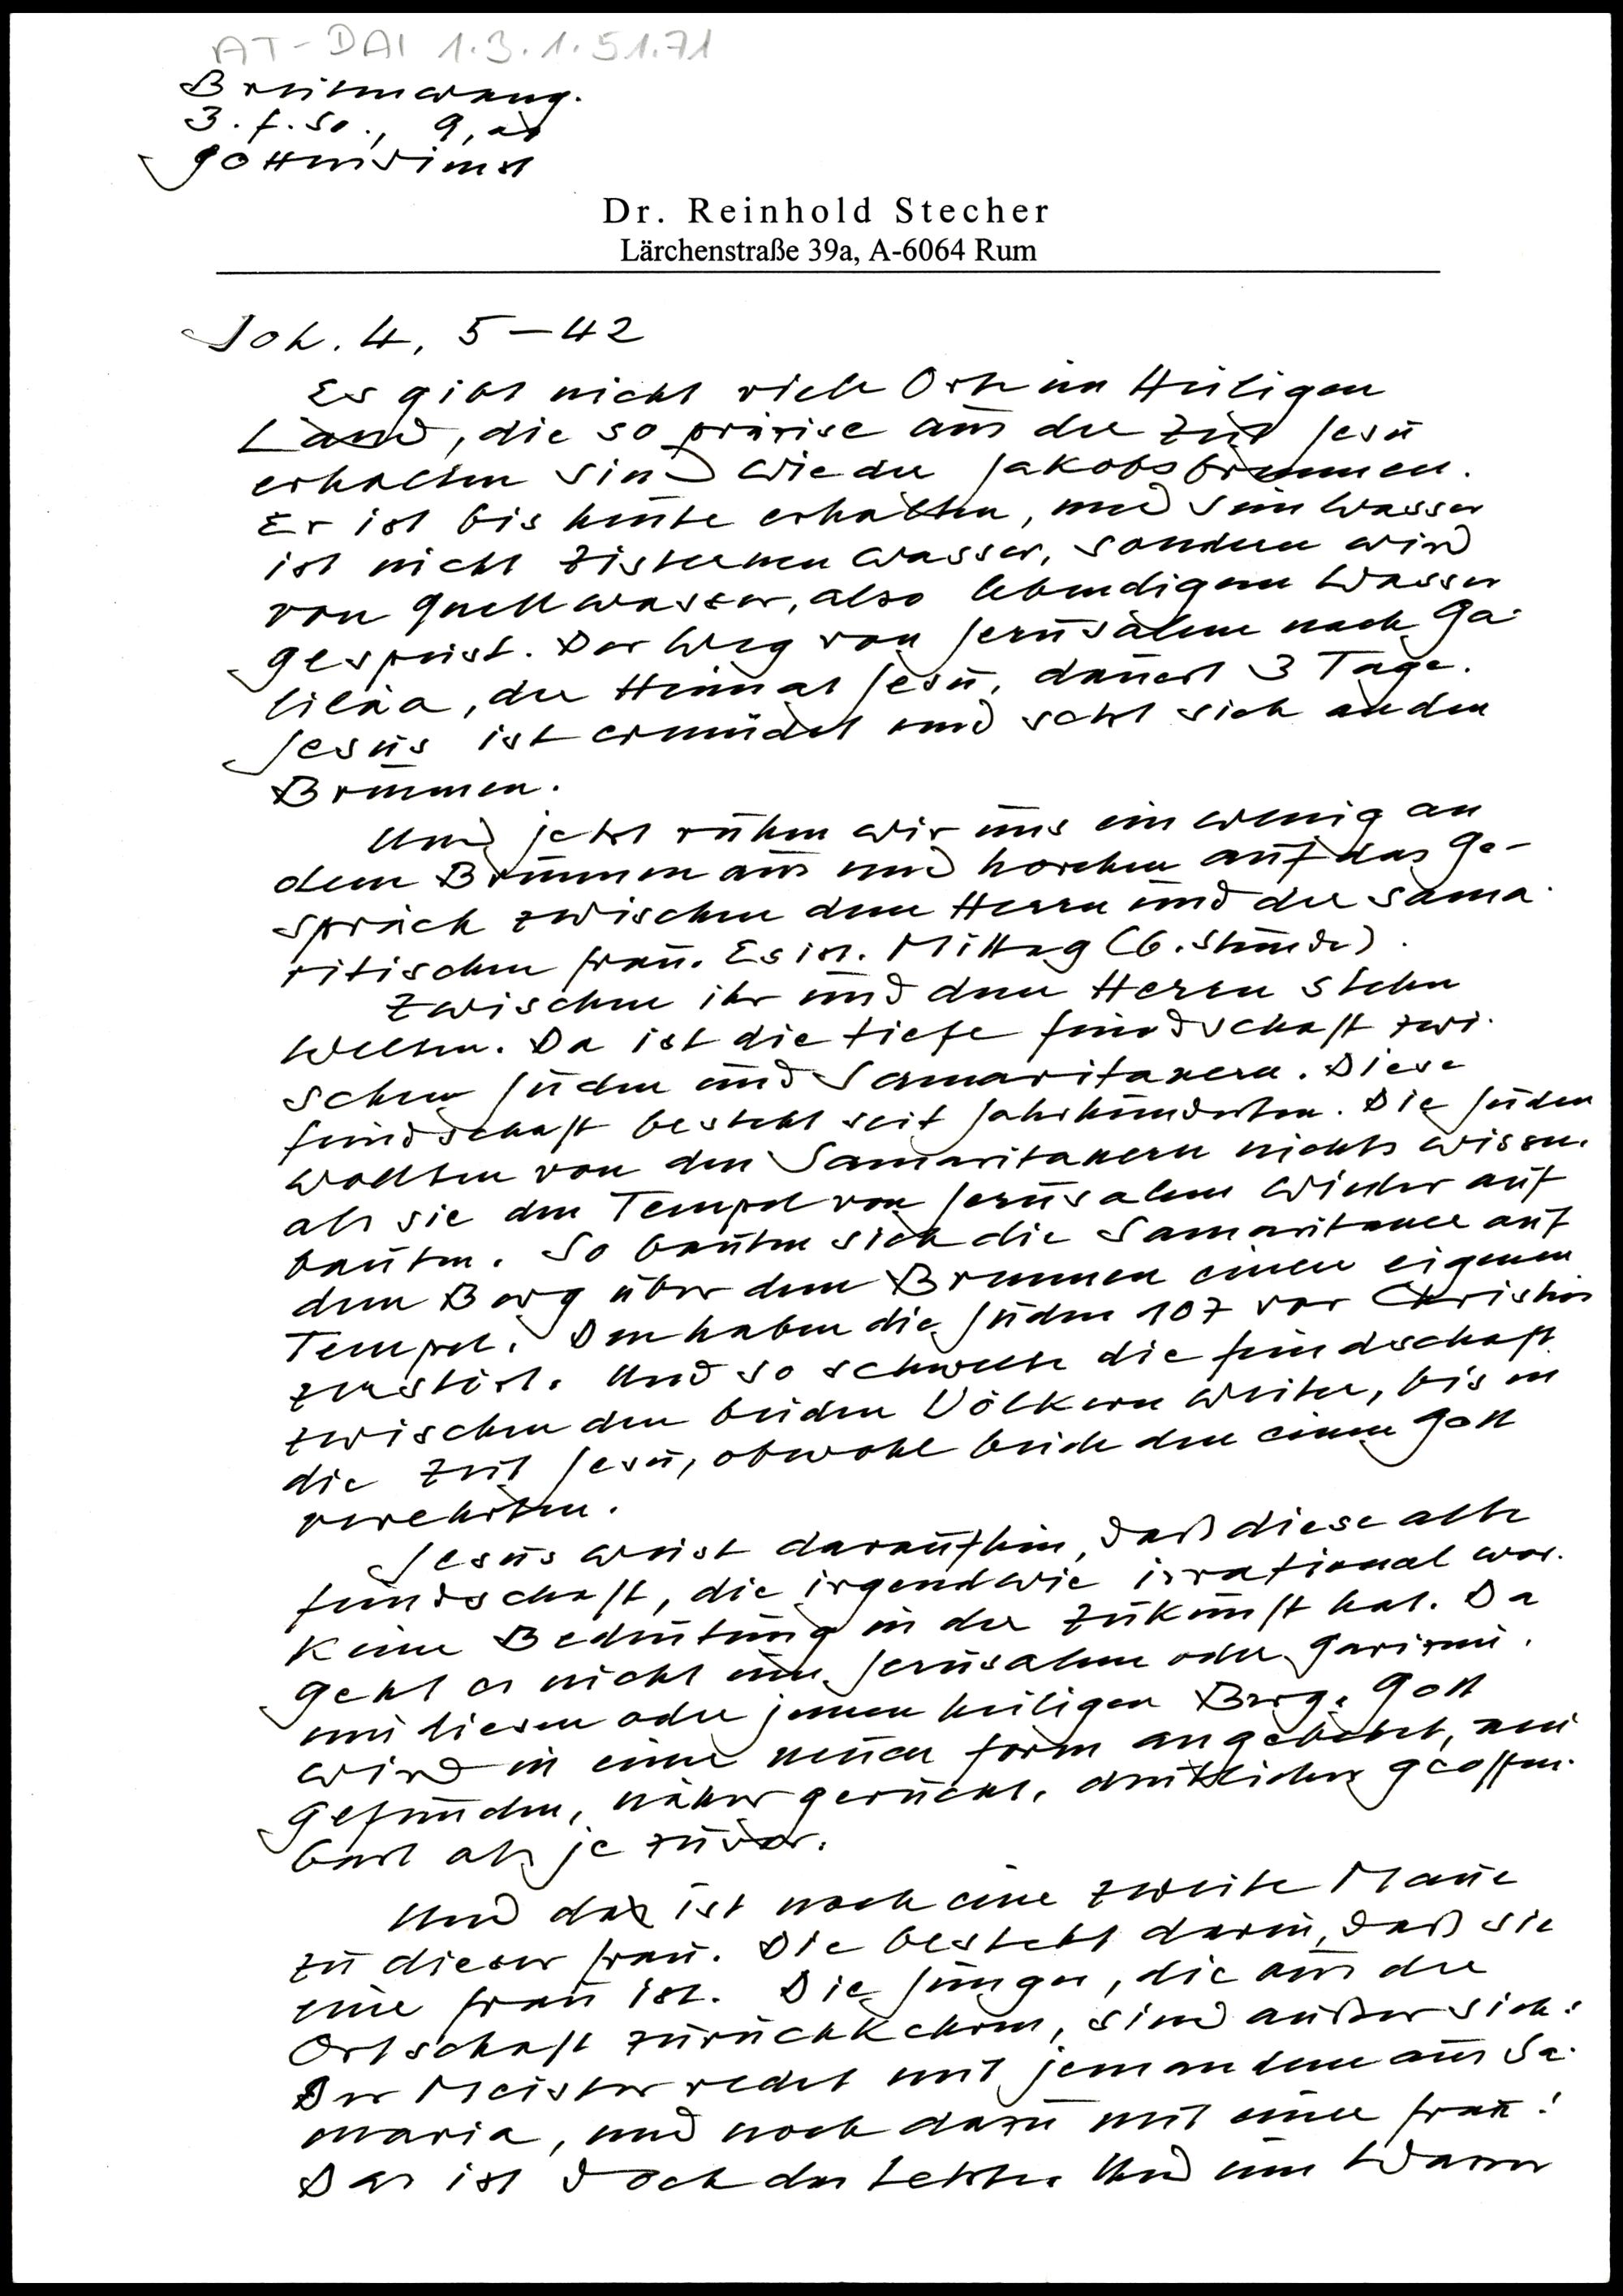 AT-DAI 1.3.1.51.71
Breitenwang.
3. F. So., 9,00
Gottesdienst
Dr. Reinhold Stecher
Lärchenstraße 39a, A-6064 Rum
Joh. 4, 5-42
Es gibt nicht viele Orte im Heiligen
Land, die so präzise aus der Zeit Jesu
erhalten sind wie der Jakobsbrunnen.
Er ist bis heute erhalten, und sein Wasser
ist nicht Zisternenwasser, sondern wird
von Quellwasser, also lebendigem Wasser
gespeist. Der Weg von Jerusalem nach Ga-
liläa, der Heimat Jesu, dauert 3 Tage.
Jesus ist ermüdet und setzt sich an den
Brunnen.
Und jetzt ruhen wir uns ein wenig an
dem Brunnen aus und horchen auf das Ge-
spräch zwischen dem Herrn und der sama-
ritischen Frau. Es ist Mittag (6. Stunde).
Zwischen ihr und dem Herrn stehen
Welten. Da ist die tiefe Feindschaft zwi-
schen Juden und Samaritanern. Diese
Feindschaft besteht seit Jahrhunderten. Die Juden
wollten von den Samaritanern nichts wissen,
als sie den Tempel von Jerusalem wieder auf
bauten. So bauten sich die Samaritaner auf
dem Berg über dem Brunnen einen eigenen
Tempel. Den haben die Juden 107 vor Christus
zerstört. Und so schwelte die Feindschaft
zwischen den beiden Völkern weiter, bis in
die Zeit Jesu, obwohl beide den einen Gott
verehrten.
Jesus weist darauf hin, daß diese alte
Feindschaft, die irgendwie irrational war.
keine Bedeutung in der Zukunft hat. Da
geht es nicht um Jerusalem oder Garizim,
um diesen oder jenen heiligen Berg. Gott
wird in einer neuen Form angebetet, neu
gefunden, näher gerückt, deutlicher geoffen-
bart als je zuvor.
Und da ist noch eine zweite Mauer
zu dieser Frau. Die besteht darin, daß sie
eine Frau ist. Die Jünger, die aus der
Ortschaft zurückkehren, sind außer sich:
Der Meister redet mit jemandem aus Sa-
maria, und noch dazu mit einer Frau!
Das ist doch das Letzte. Und um Wasser